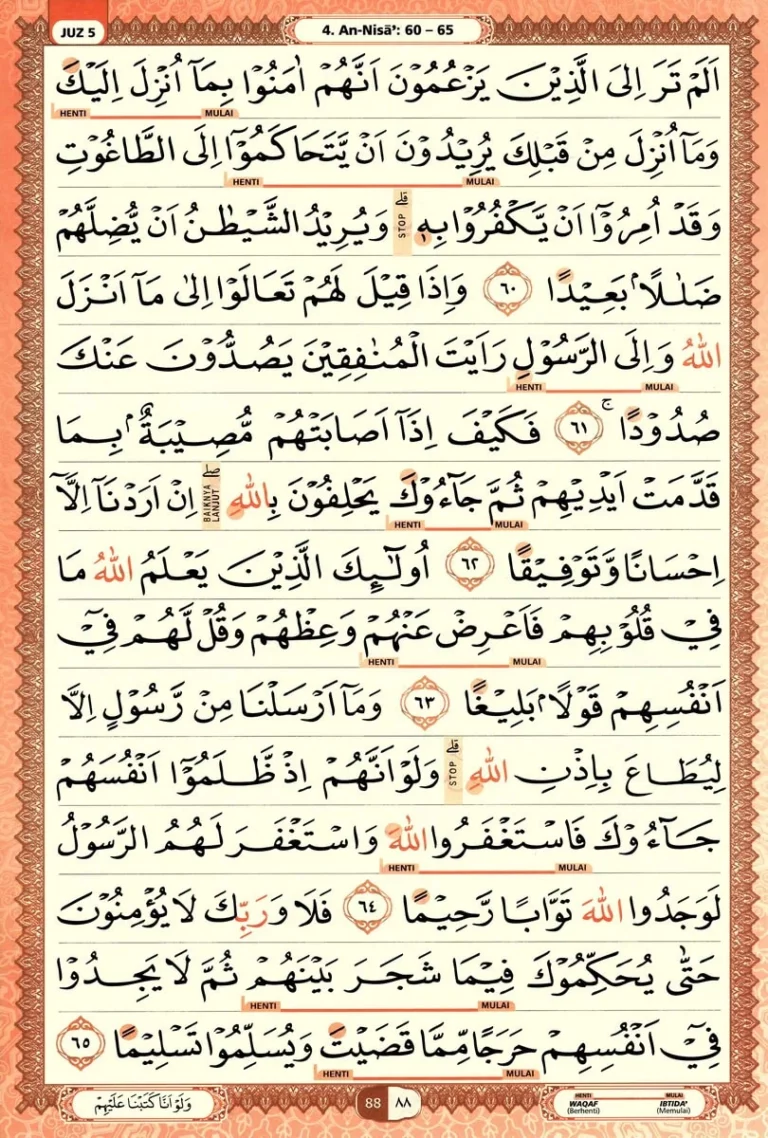 JUZ 5
4. An-Nisā’: 60 – 65
اَلَمْ تَرَ اِلَى الَّذِيْنَ يَزْعُمُوْنَ اَنَّهُمْ اٰمَنُوْا بِمَآ اُنْزِلَ اِلَيْكَ
HENTI MULAI
وَمَآ اُنْزِلَ مِنْ قَبْلِكَ يُرِيْدُوْنَ اَنْ يَّتَحَاكَمُوْٓا اِلَى الطَّاغُوْتِ
HENTI MULAI
وَقَدْ اُمِرُوْٓا اَنْ يَّكْفُرُوْا بِهٖ ۗ STOP وَيُرِيْدُ الشَّيْطٰنُ اَنْ يُّضِلَّهُمْ
ضَلٰلًاۢ بَعِيْدًا ٦٠ وَاِذَا قِيْلَ لَهُمْ تَعَالَوْا اِلٰى مَآ اَنْزَلَ
اللّٰهُ وَاِلَى الرَّسُوْلِ رَاَيْتَ الْمُنٰفِقِيْنَ يَصُدُّوْنَ عَنْكَ
HENTI MULAI
صُدُوْدًا ۚ ٦١ فَكَيْفَ اِذَآ اَصَابَتْهُمْ مُّصِيْبَةٌ ۢبِمَا
قَدَّمَتْ اَيْدِيْهِمْ ثُمَّ جَاۤءُوْكَ يَحْلِفُوْنَ بِاللّٰهِ ۖ BAIKNYA LANJUT اِنْ اَرَدْنَآ اِلَّآ
HENTI MULAI
اِحْسَانًا وَّتَوْفِيْقًا ٦٢ اُولٰۤىِٕكَ الَّذِيْنَ يَعْلَمُ اللّٰهُ مَا
فِيْ قُلُوْبِهِمْ فَاَعْرِضْ عَنْهُمْ وَعِظْهُمْ وَقُلْ لَّهُمْ فِيْٓ
HENTI MULAI
اَنْفُسِهِمْ قَوْلًاۢ بَلِيْغًا ٦٣ وَمَآ اَرْسَلْنَا مِنْ رَّسُوْلٍ اِلَّا
لِيُطَاعَ بِاِذْنِ اللّٰهِ ۗ STOP وَلَوْ اَنَّهُمْ اِذْ ظَّلَمُوْٓا اَنْفُسَهُمْ
جَاۤءُوْكَ فَاسْتَغْفَرُوا اللّٰهَ وَاسْتَغْفَرَ لَهُمُ الرَّسُوْلُ
HENTI MULAI
لَوَجَدُوا اللّٰهَ تَوَّابًا رَّحِيْمًا ٦٤ فَلَا وَرَبِّكَ لَا يُؤْمِنُوْنَ
حَتّٰى يُحَكِّمُوْكَ فِيْمَا شَجَرَ بَيْنَهُمْ ثُمَّ لَا يَجِدُوْا
HENTI MULAI
فِيْٓ اَنْفُسِهِمْ حَرَجًا مِّمَّا قَضَيْتَ وَيُسَلِّمُوْا تَسْلِيْمًا ٦٥
HENTI MULAI
وَلَوْ اَنَّا كَتَبْنَا عَلَيْهِمْ
88 ٨٨
HENTI MULAI
WAQAF IBTIDA’
(Berhenti) (Memulai)